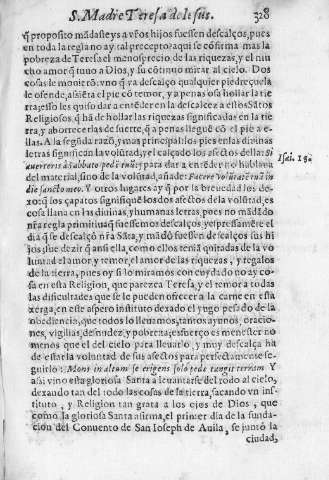 S. Madre Teresa de Iesus.
328
q̃ proposito mãdasse ys a vr̃os hijos fuessen descalços, pues
en toda la regla no ay tal precepto? aqui se cõfirma mas la
pobreza de Teresa el menosprecio de las riquezas, y el mu
cho amor q̃ tuuo a Dios, y su cõtinuo mirar al cielo. Dos
cosas le mouierõ: vno q̃ va descalço qualquier piedreçuela
le ofende, assiẽta el pie cõ temor, y a penas osa hollar la tie
rra, esso les quiso dar a entẽder en la descalcez a estos Sãtos
Religiosos, q̃ hã de hollar las riquezas significadas en la tie
rra, y aborrecerlas de suerte, q̃ a penas lleguẽ cõ el pie a e-
llas. A la segũda razõ, y mas principal: los pies en las diuinas
letras significan la volũtad, y el calçado los afectos della: Si
auerteris à sabbato pedẽ tuũ: y para dar a entẽder no hablaua
Isai. 58.
del material, sino de la volũtad, añade: Facere volũtatẽ tuã in
die sancto meo. Y otros lugares ay q̃ por la breuedad los de-
xo: q̃ los çapatos signifiquẽ los dos afectos de la volũtad, es
cosa llana en las diuinas, y humanas letras, pues no mãdãdo
nr̃a regla primitiua q̃ fuessemos descalços, y expressamẽte el
dia q̃ se descalçò nr̃a Sãta, y mãdò fuessen descalços sus hi
jos, fue dezir q̃ ansi ella, como ellos teniã quitadas de la vo
luntad el amor, y temor, el amor de las riquezas, y regalos
de la tierra, pues oy si lo miramos con cuydado no ay co-
sa en esta Religion, que parezca Teresa, y el temor a todas
las dificultades que se le pueden ofrecer a la carne en esta
xerga, en este aspero instituto dexado el yugo pesado de la
obediencia, que todos lo lleuamos, tantos ayunos, oracio-
nes, vigilias, desnudez, y pobreza, esfuerço es menester no
menos que el del cielo para lleuarlo, y muy descalça hà
de estar la voluntad de sus afectos para perfectamente se-
guirlo: Mons in altum se erigens solo pede tangit terram Y
assi vino esta gloriosa Santa a leuantarse del todo al cielo,
dexando tan del todo las cosas de la tierra, sacando vn ins-
tituto, y Religion tan grata a los ojos de Dios, que
como la gloriosa Santa afirma, el primer dia de la funda-
cion del Conuento de San Ioseph de Auila, se juntò la
ciudad,